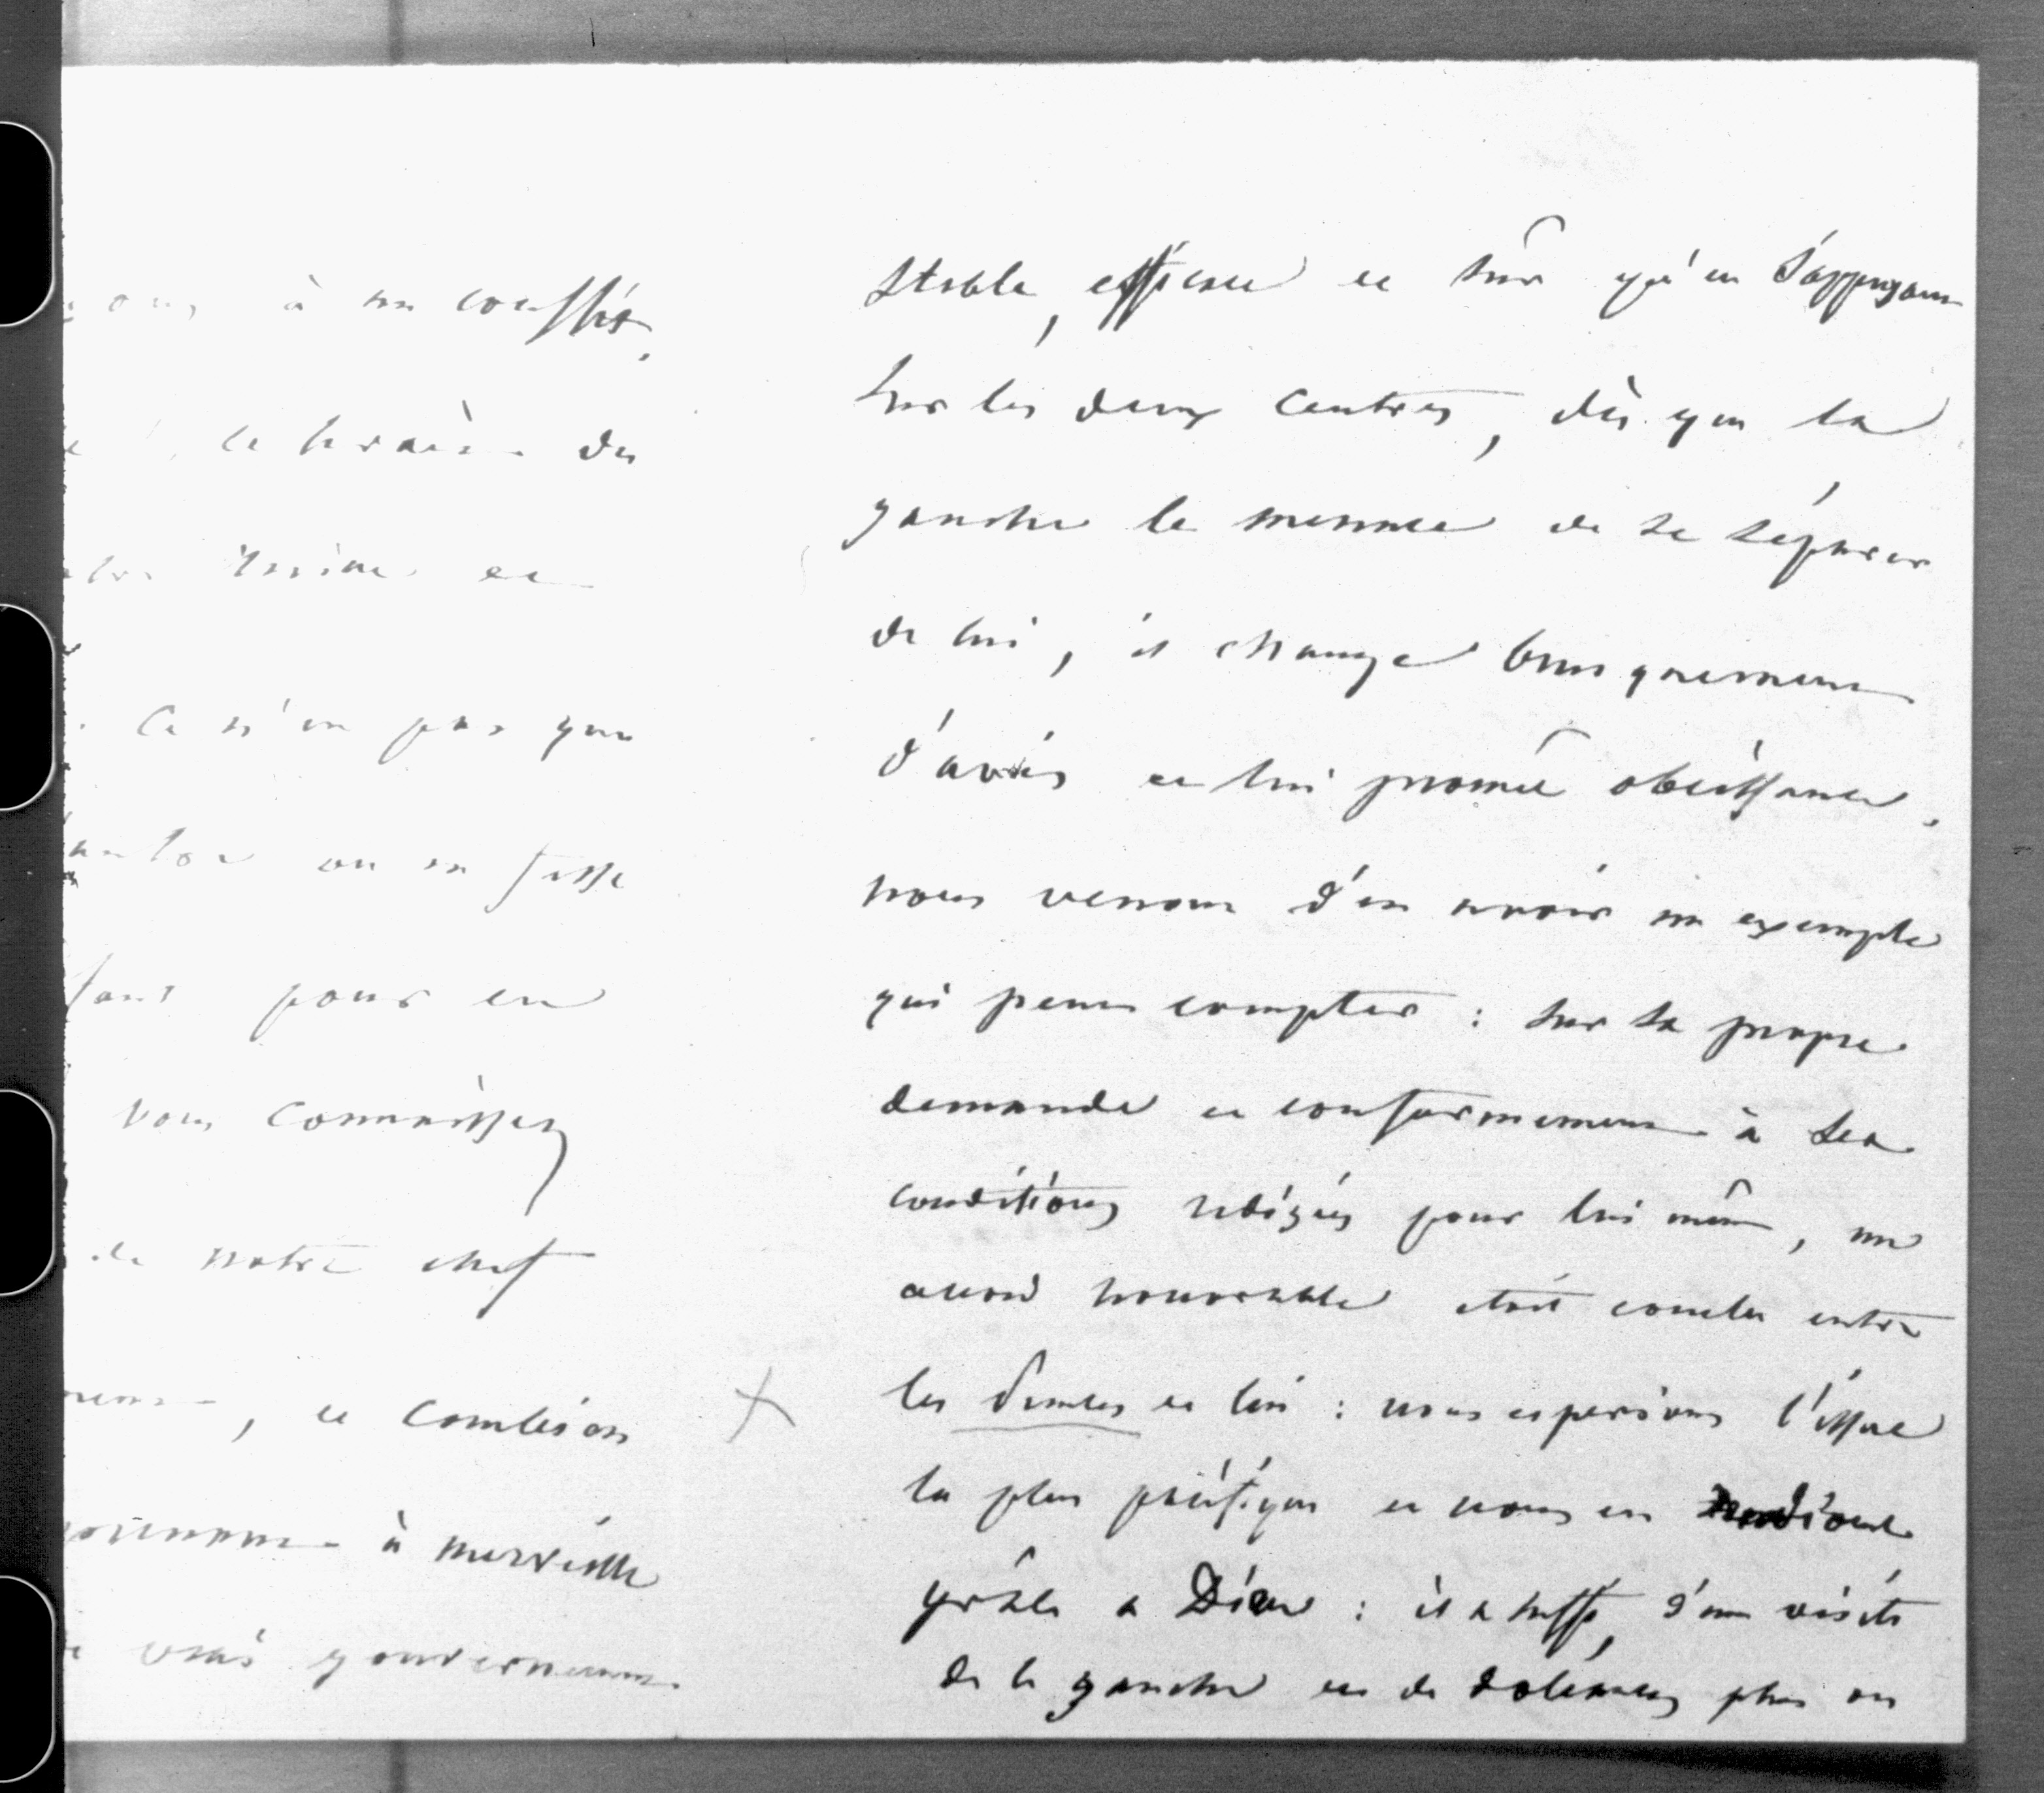 à un conflit,
le terrain des
et
. Ce n'est pas que
on en fasse
pour en
vous connaissez
de notre chef
, et combien
à merveille
vrai gouvernement.
stable, efficace et sûr qu'en s'appuyant
sur les deux centres, dès que la
gauche le menace de se séparer
de lui, il change brusquement
d'avis et lui promet obéissance.
nous venons d'en avoir un exemple
qui peut compter : sur sa propre
demande et conformement à ses
conditions redigées pour lui même, un
accord honorable était conclu entre
les Trente et lui : nous esperions l'issue
la plus pacifique et nous en rendions
grâces a Dieu : il a suffi, d'une visite
de la gauche et de doléances plus ou